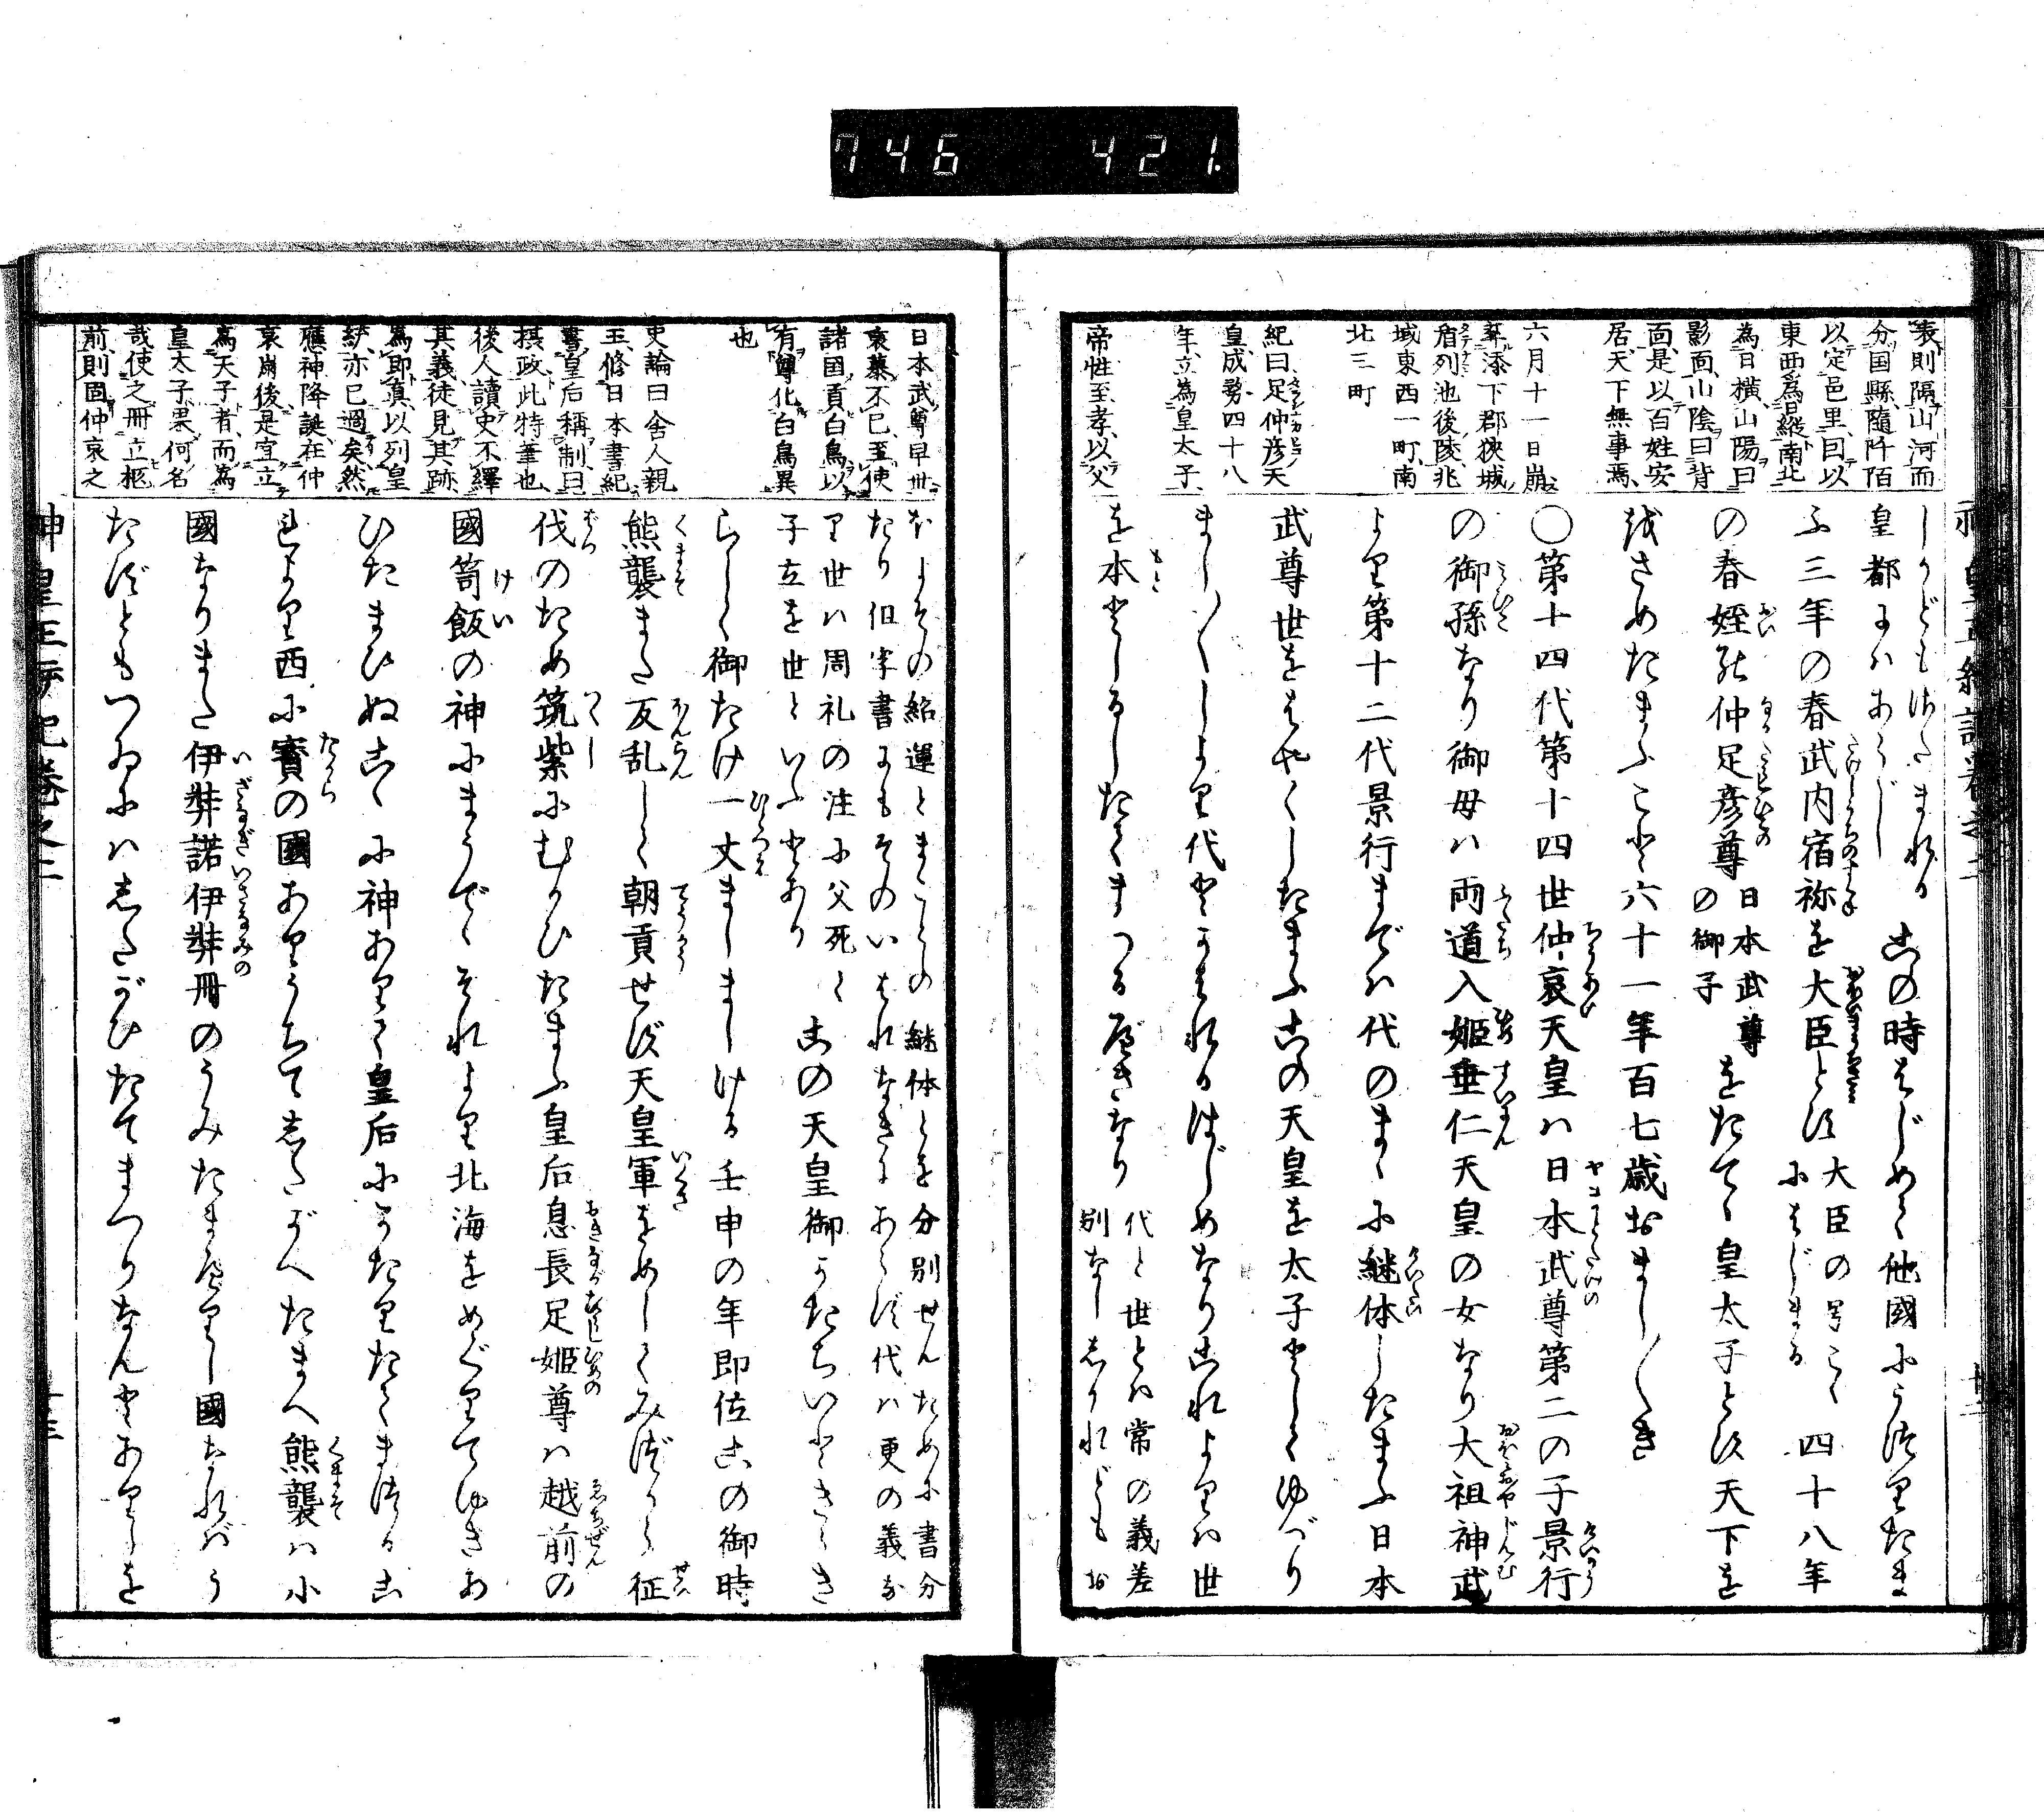 746 421.
表則隔山河而
分国縣隨阡陌
以定邑里因以
東西為日縦南北
為日横山陽曰
影面山陰曰背
面是以百姓安
居天下無事焉
六月十一日崩
葬添下郡狭城
盾列池後陵兆
域東西一町南
北三町
紀曰足仲彦天
皇成務四十八
年立為皇太子
帝性至孝以父
しかどもはたまれる
皇都にハあらじ
この時はじめて他國にうつりたま
ふ三年の春武内宿祢を大臣とす
大臣の号こゝ
にはじまる
四十八年
の春姪の仲足彦尊
日本武尊
の御子
をたてゝ皇太子とす天下を
おさめたまふこと六十一年百七歳おましましき
○第十四代第十四世仲哀天皇ハ日本武尊第二の子景行
の御孫なり御母ハ両道入姫垂仁天皇の女なり大祖神武
より第十二代景行までハ代のまゝに継体したまふ日本
武尊世をはやくしたまふこの天皇を太子としてゆづり
ましましゝより代とかはれるはじめなりこれよりハ世
を本としるしたてまつるべきなり
代と世とは常の義差
別なししかれどもお
日本武尊早世
哀慕不已至使
諸国貢白鳥以
有尊化白鳥異
也
史論曰舎人親
王修日本書紀
書皇后稱制曰
摂政此特筆也
後人讀史不繹
其義徒見其跡
為即真以列皇
統亦已過矣然
應神降誕在仲
哀崩後是宜立
為天子者而為
皇太子果何名
哉使之冊立柩
前則固仲哀之
ほよその紹運とまことの継体とを分別せんために書分
たり但字書にもそのいはれなきにあらず代ハ更の義な
り世ハ周礼の注に父死て
子立を世といふとあり
この天皇御かたちいときらきら
らしく御たけ一丈ましましける壬申の年即位この御時
熊襲また反乱して朝貢せず天皇軍をめしてみづから征
伐のため筑紫にむかひたまふ皇后息長足姫尊ハ越前の
國笥飯の神にまうでゝそれより北海をめぐりてゆきあ
ひたまひぬこゝに神ありて皇后にかたりたてまつるこ
れより西に寳の國ありうちてしたがへたまへ熊襲ハ小
國なりまた伊弉諾伊弉冊のうみたまへりし國なれバう
たずともつゐにハしたがひたてまつりなんとありしを
神皇正統記巻之二